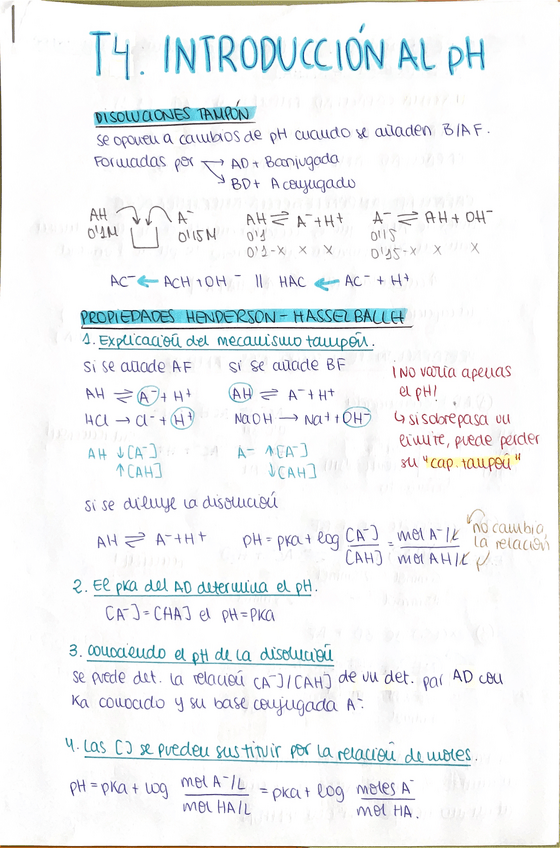 T4. INTRODUCCIÓN AL pH
DISOLUCIONES TAMPÓN
se oponen a cambios de pH cuando se añaden B/AF.
Formadas por → AD + Bconjugada
↘ BD + A conjugado
AH A⁻ AH ⇌ A⁻ + H⁺ A⁻ ⇌ AH + OH⁻
0'1M 0'15M 0'1 0'15
0'1-x x x 0'15-x x x
AC⁻ ← ACH + OH⁻ || HAC ← AC⁻ + H⁺
PROPIEDADES HENDERSON - HASSELBALCH
1. Explicación del mecanismo tampón.
si se añade AF si se añade BF
AH ⇌ A⁻ + H⁺ AH ⇌ A⁻ + H⁺
HCl → Cl⁻ + H⁺ NaOH → Na⁺ + OH⁻
AH ↓[A⁻] A⁻ ↑[A⁻]
↑[AH] ↓[AH]
¡No varía apenas
el pH!
↳ si sobrepasa un
límite, puede perder
su "cap. tampón"
si se diluye la disolución
AH ⇌ A⁻ + H⁺ pH = pKa + log [A⁻]/[AH] = mol A⁻/L / mol AH/L
no cambia
la relación
2. El pKa del AD determina el pH.
[A⁻] = [HA] el pH = pKa
3. conociendo el pH de la disolución
se puede det. la relación [A⁻]/[AH] de un det. par AD con
Ka conocido y su base conjugada A⁻.
4. Las [] se pueden sustituir por la relación de moles.
pH = pKa + log mol A⁻/L / mol HA/L = pKa + log moles A⁻ / mol HA.